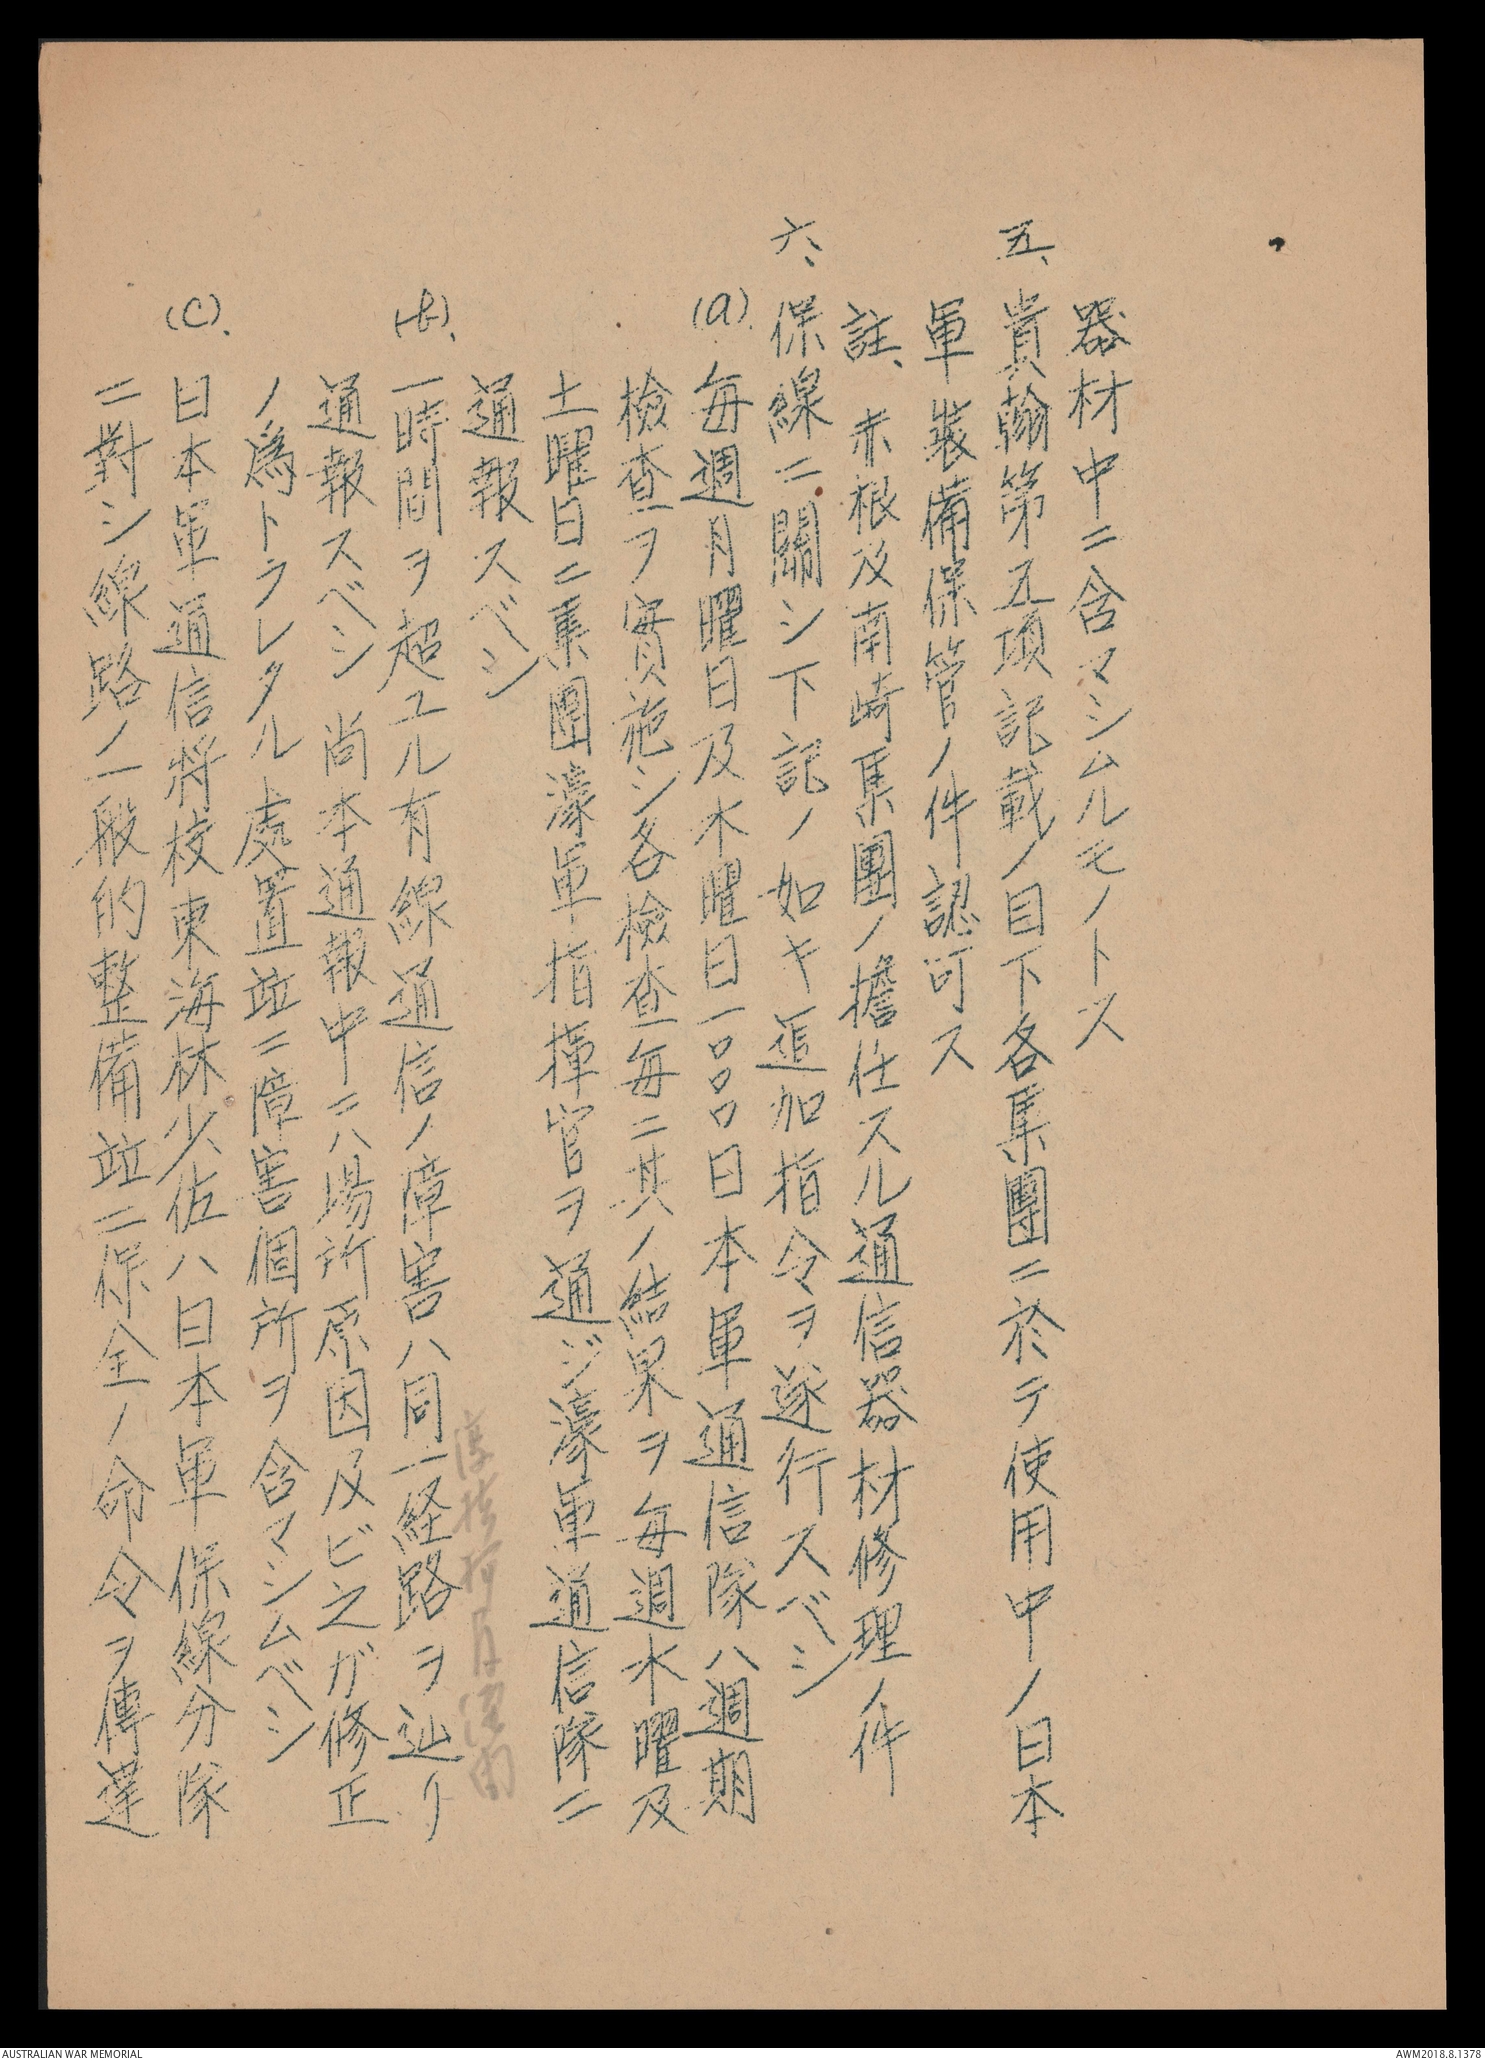 器材中ニ含マシムルモノトス
五、貴翰第五項記載ノ目下各集團ニ於テ使用中ノ日本
軍裝備保管ノ件認可ス
註、赤根及南崎集團ノ擔任スル通信器材修理ノ件
六、保線ニ關シ下記ノ如キ追加指令ヲ遂行スベシ
(a).毎週月曜日及木曜日一〇〇〇日本軍通信隊ハ週期
檢查ヲ實施シ各檢查毎ニ其ノ結果ヲ毎週水曜及
土曜日ニ集團濠軍指揮官ヲ通ジ濠軍通信隊ニ
通報スベシ
(b).一時間ヲ超ユル有線通信ノ障害ハ同一経路ヲ辿リ
通報スベシ 尚本通報中ニハ場所原因及ビ之ガ修正
ノ爲トラレタル處置竝ニ障害個所ヲ含マシムベシ
(C).日本軍通信将校東海林少佐ハ日本軍保線分隊
ニ對シ線路ノ一般的整備竝ニ保全ノ命令ヲ傳達
AUSTRALIAN WAR MEMORIAL
AWM2018.8.1378